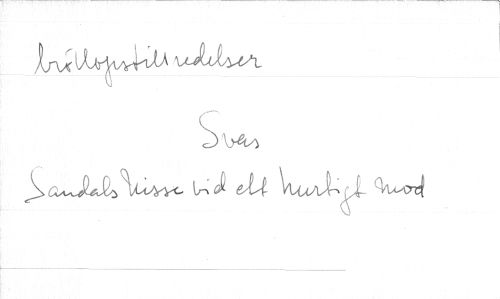 bröllopstillredelser
Svens
Sandals Nisse vid ett hurtigt mod